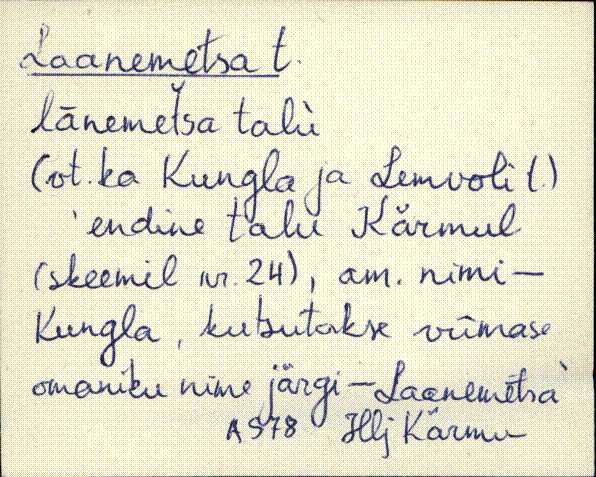 Laanemetsa t.
lānemeťsa talù
(vt. ka Kungla ja Lemvoli t.)
endine talu Kärmul
(skeemil nr. 24), am. nimi —
Kungla, kutsutakse viimase
omaniku nime järgi — Laanemetsa
AS78 Hlj Kärmu